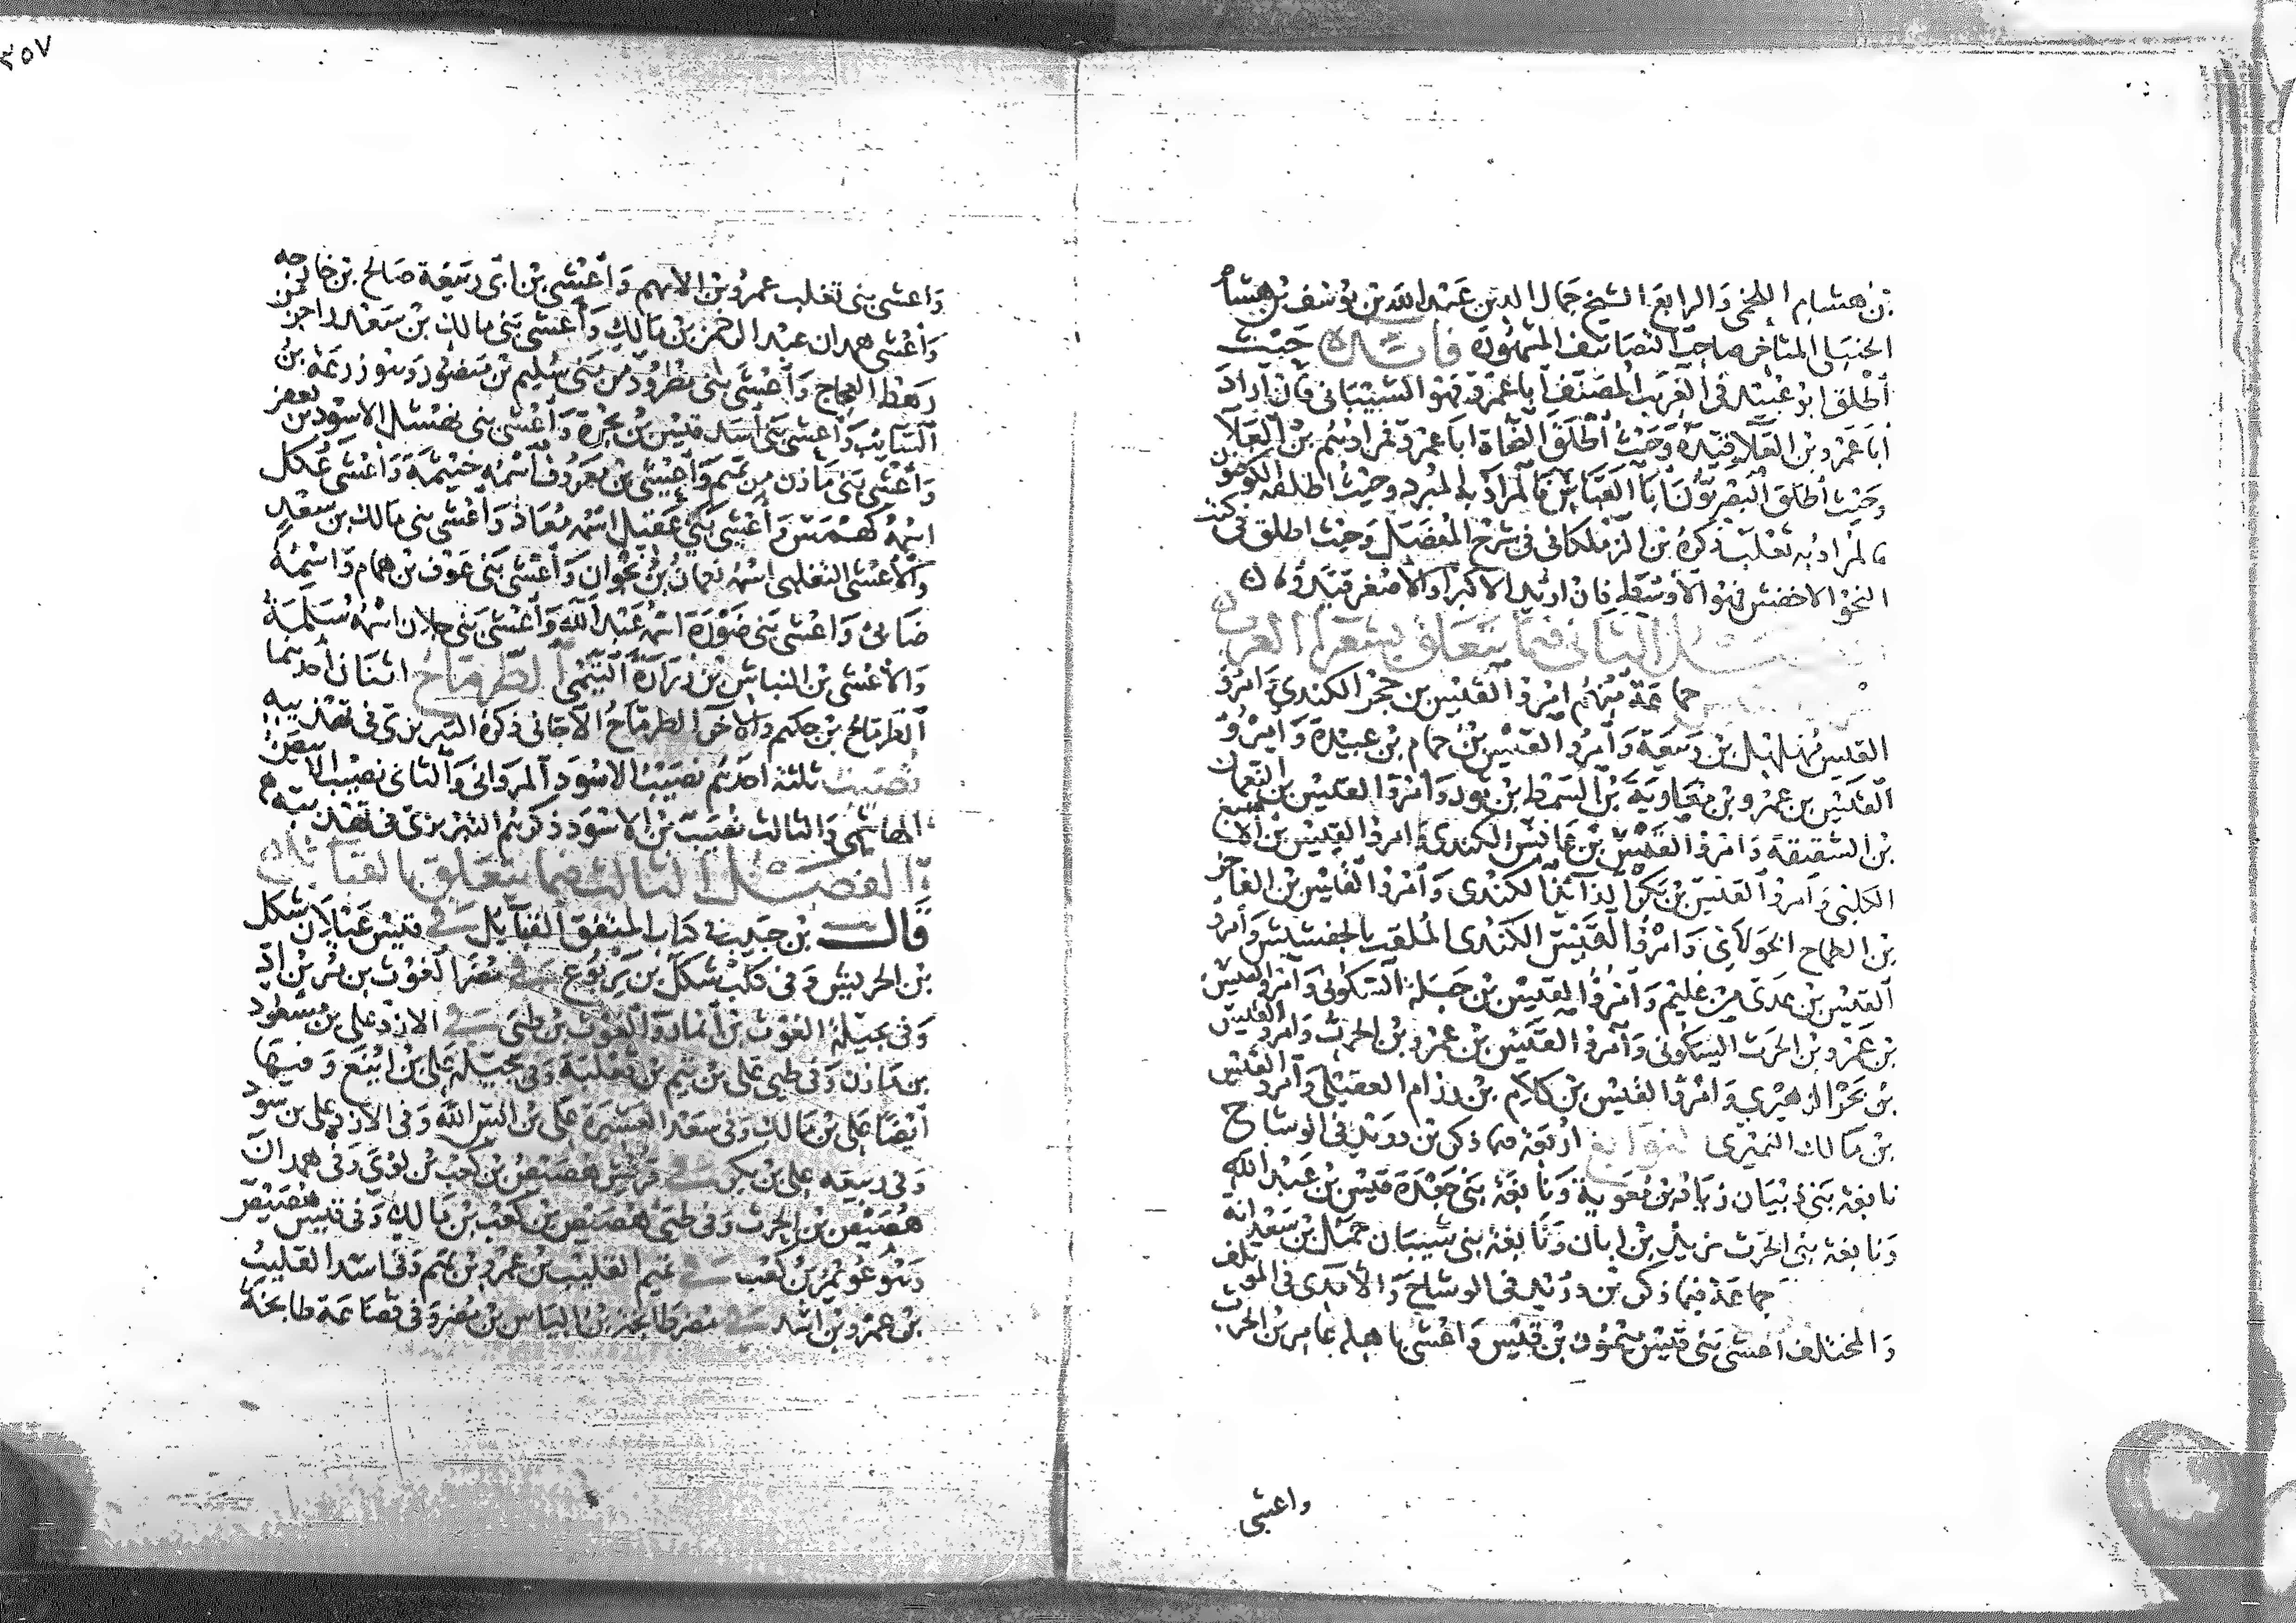 بن هشام اللخمى والرابع الشيخ جمال الدين عبد الله بن يوسف بن هشام
الحنبلى المتأخر صاحب التصانيف المشهورة فائدة حيث
أطلق ابو عبيد فى الغريب المصنف أبا عمرو فهو الشيبانى فان أراد
أبا عمرو بن العلا قيده وحيث أطلق النحاة ابا عمرو فمرادهم بن العلا
وحيث أطلق البصريون أبا العباس فالمراد به المبرد وحيث اطلقه الكوفيون
فالمراد به ثعلب ذكره بن الزملكانى فى شرح المفصل وحيث اطلق فى كتب
النحو الاخفش فهو الأوسط فان اريد الاكبر او الأصغر قيدوه
الثانى فيما يتعلق بشعرا العرب
جماعة منهم امرؤ القيس بن حجر الكندى وامرؤ
القيس مهلهل بن ربيعة وامرؤ القيس بن حمام بن عبيدة وامرؤ
القيس بن عمرو بن معاوية بن السمط بن ثور وامرؤ القيس بن النعمان
بن الشقيقة وامرؤ القيس بن عابس الكندى وامرؤ القيس بن الاصبغ
الكلبى وامرؤ القيس بن بكر الذائد الكندى وامرؤ القيس بن الفاخر
بن الطماح الخولانى وامرؤ القيس الكندى الملقب بالجفشيش وامرؤ
القيس بن عدى من عليم وامرؤ القيس بن جبلة السكونى وامرؤ القيس
بن عمرو بن الحرث السكونى وامرؤ القيس بن عمرو بن الحرث وامرؤ القيس
بن بحر الزهيرى وامرؤ القيس بن كلام بن رزام العقيلى وامرؤ القيس
بن مالك النميرى النوابغ أربعة فيما ذكر بن دريد فى الوشاح
نابغة بنى ذبيان زياد بن معوية ونابغة بنى جعدة قيس بن عبد الله
ونابغة بنى الحرث يزيد بن ابان ونابغة بنى شيبان جمل بن سعدانة
جماعة فيما ذكر بن دريد فى الوشاح والآمدى فى المؤتلف
والمختلف أعشى بنى قيس ميمون بن قيس وأعشى باهلة عامر بن الحرث
واعشى
٣٥٧
واعشى بنى تغلب عمرو بن الاهيم وأعشى بن ابى ربيعة صالح بن خارجه
وأعشى همدان عبد الرحمن بن مالك وأعشى بنى مالك بن سعد راجز من
رهط العجاج وأعشى بنى طرود من بنى سليم بن منصور وهو زرعة بن
السائب وأعشى بنى أسد قيس بن بجرة وأعشى بنى نهشل الاسود بن يعفر
وأعشى بنى مازن من تميم وأعشى بن معروف اسمه خيثمة وأعشى عكل
اسمه كهمس وأعشى بنى عقيل اسمه معاذ وأعشى بنى مالك بن سعد
والأعشى التغلبى اسمه نعمان بن نجوان وأعشى بنى عوف بن همام واسمه
ضابئ وأعشى بنى ضورة اسمه عبد الله وأعشى بنى جلان اسمه سلمة
والأعشى بن النباش بن زرارة التيمى الطرماح اثنان أحدهما
الطرماح بن حكيم والآخر الطرماح الأجائى ذكره التبريزى فى تهذيبه
نصيب ثلثة احدهم نصيب الاسود المروانى والثانى نصيب الابيض
الهاشمى والثالث نصيب بن الاسود ذكرهم التبريزى فى تهذيبه
الفصل الثالث فيما يتعلق بالقبائل
قال بن حبيب فى كتاب المتفق القبائل فى قيس عيلان شكل
بن الحريش وفى كلب شكل بن يربوع فى مضر الغوث بن مر بن اد
وفى بجيلة الغوث بن أنمار والغوث بن طيئ فى الازد على بن مسعود
بن مازن وفى طيئ على بن تميم بن ثعلبة وفى بجيلة على بن اينع وفيها
أيضا على بن مالك وفى سعد العشيرة على بن انس الله وفى الازد على بن سود
وفى ربيعة على بن بكر فى قريش هصيص بن كعب بن لؤى وفى همدان
هصيص بن الحرث وفى طيئ هصيص بن كعب بن مالك وفى قيس هصيص
وهو عويمر بن كعب فى تميم القليب بن عمرو بن تميم وفى اسد القليب
بن عمرو بن اسد فى مضر طابخة بن الياس بن مضر وفى قضاعة طابخة